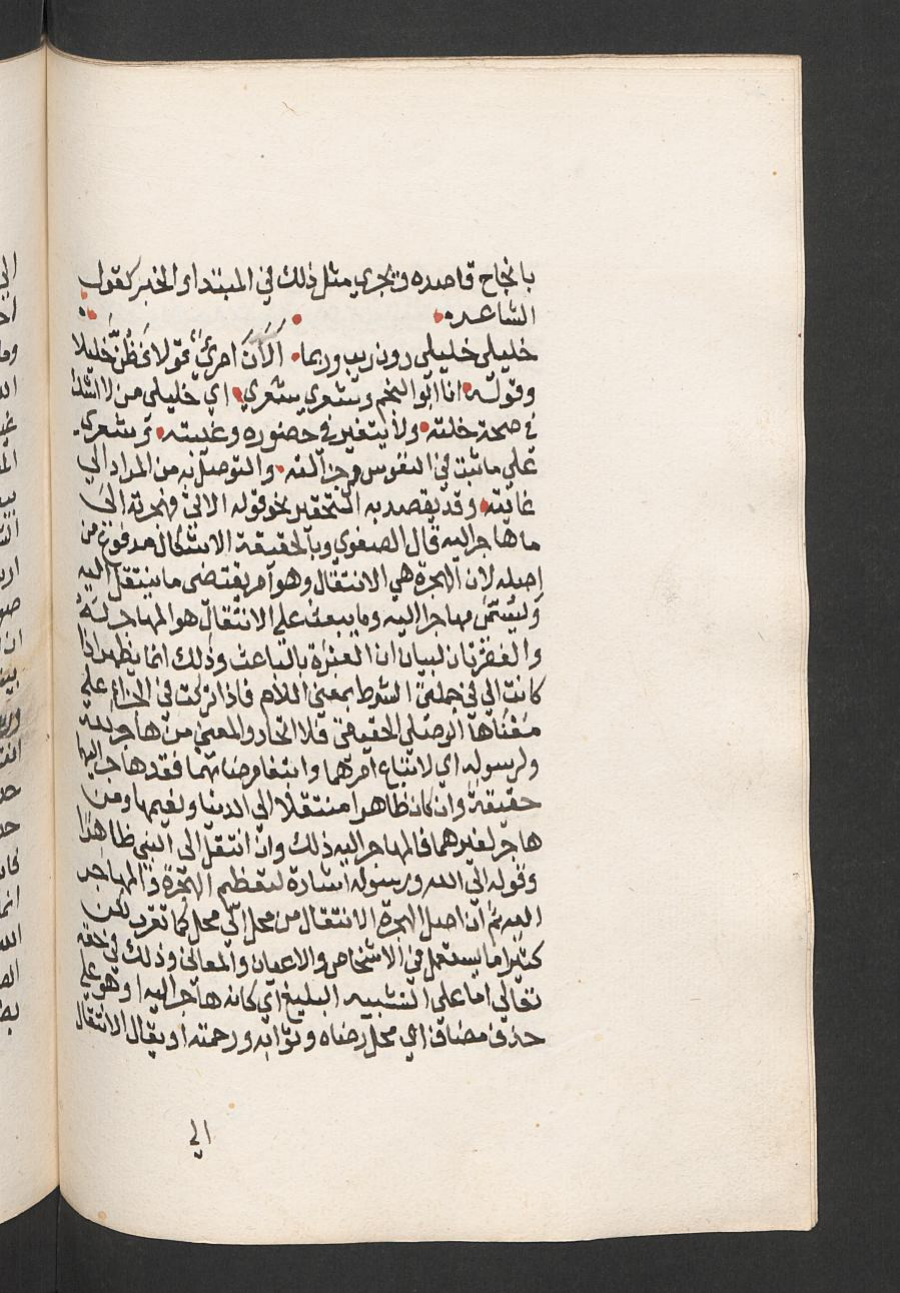 بانجاح قاصده وتجري مثل ذلك في المبتدا والخبر كقول
الشاعر
خليلي خليلي دون ريب وربما الان امرئ قولا نظن خليلا
وقوله انا ابو النجم وشعري شعري اي خليلي من لا اشك
في صحة خلته ولا يتغير في حضوره وغيبته وشعري
على ما ثبت في النفوس من جزالته والتوصل به من المراد الى
غايته وقد يقصد به التحقير نحو قوله الاتي فهجرته الى
ما هاجر اليه قال الصفوي وبالحقيقة الاشكال مدفوع من
اصله لان الهجرة هي الانتقال وهو امر يقتضي ما ينتقل اليه
وليسمى مهاجرا اليه وما يبعث على الانتقال هو المهاجر له
والفقرتان لبيان ان العبرة بالباعث وذلك انما يظهر اذا
كانت الى في جملتي الشرط بمعنى اللام فاذا تركت في الجزاء على
معناها الوضعي الحقيقي فلا اتحاد والمعنى من هاجر لله
ولرسوله اي لاتباع امرهما وابتغاء مرضاتهما فقد هاجر اليهما
حقيقة وان كان ظاهرا منتقلا الى الدنيا ونعيمها ومن
هاجر لغيرهما فالمهاجر اليه ذلك وان انتقل الى النبي ظاهرا
وقوله الى الله ورسوله اشارة لتعظيم الهجرة والمهاجر
اليه ثم ان اصل الهجرة الانتقال من محل الى محل كما تقرر لكن
كثيرا ما يستعمل في الاشخاص والاعيان والمعاني وذلك في حقه
تعالى اما على التشبيه البليغ اي كانه هاجر اليه او هو على
حذف مضاف اي محل رضاه وثوابه ورحمته او يقال الانتقال
الى